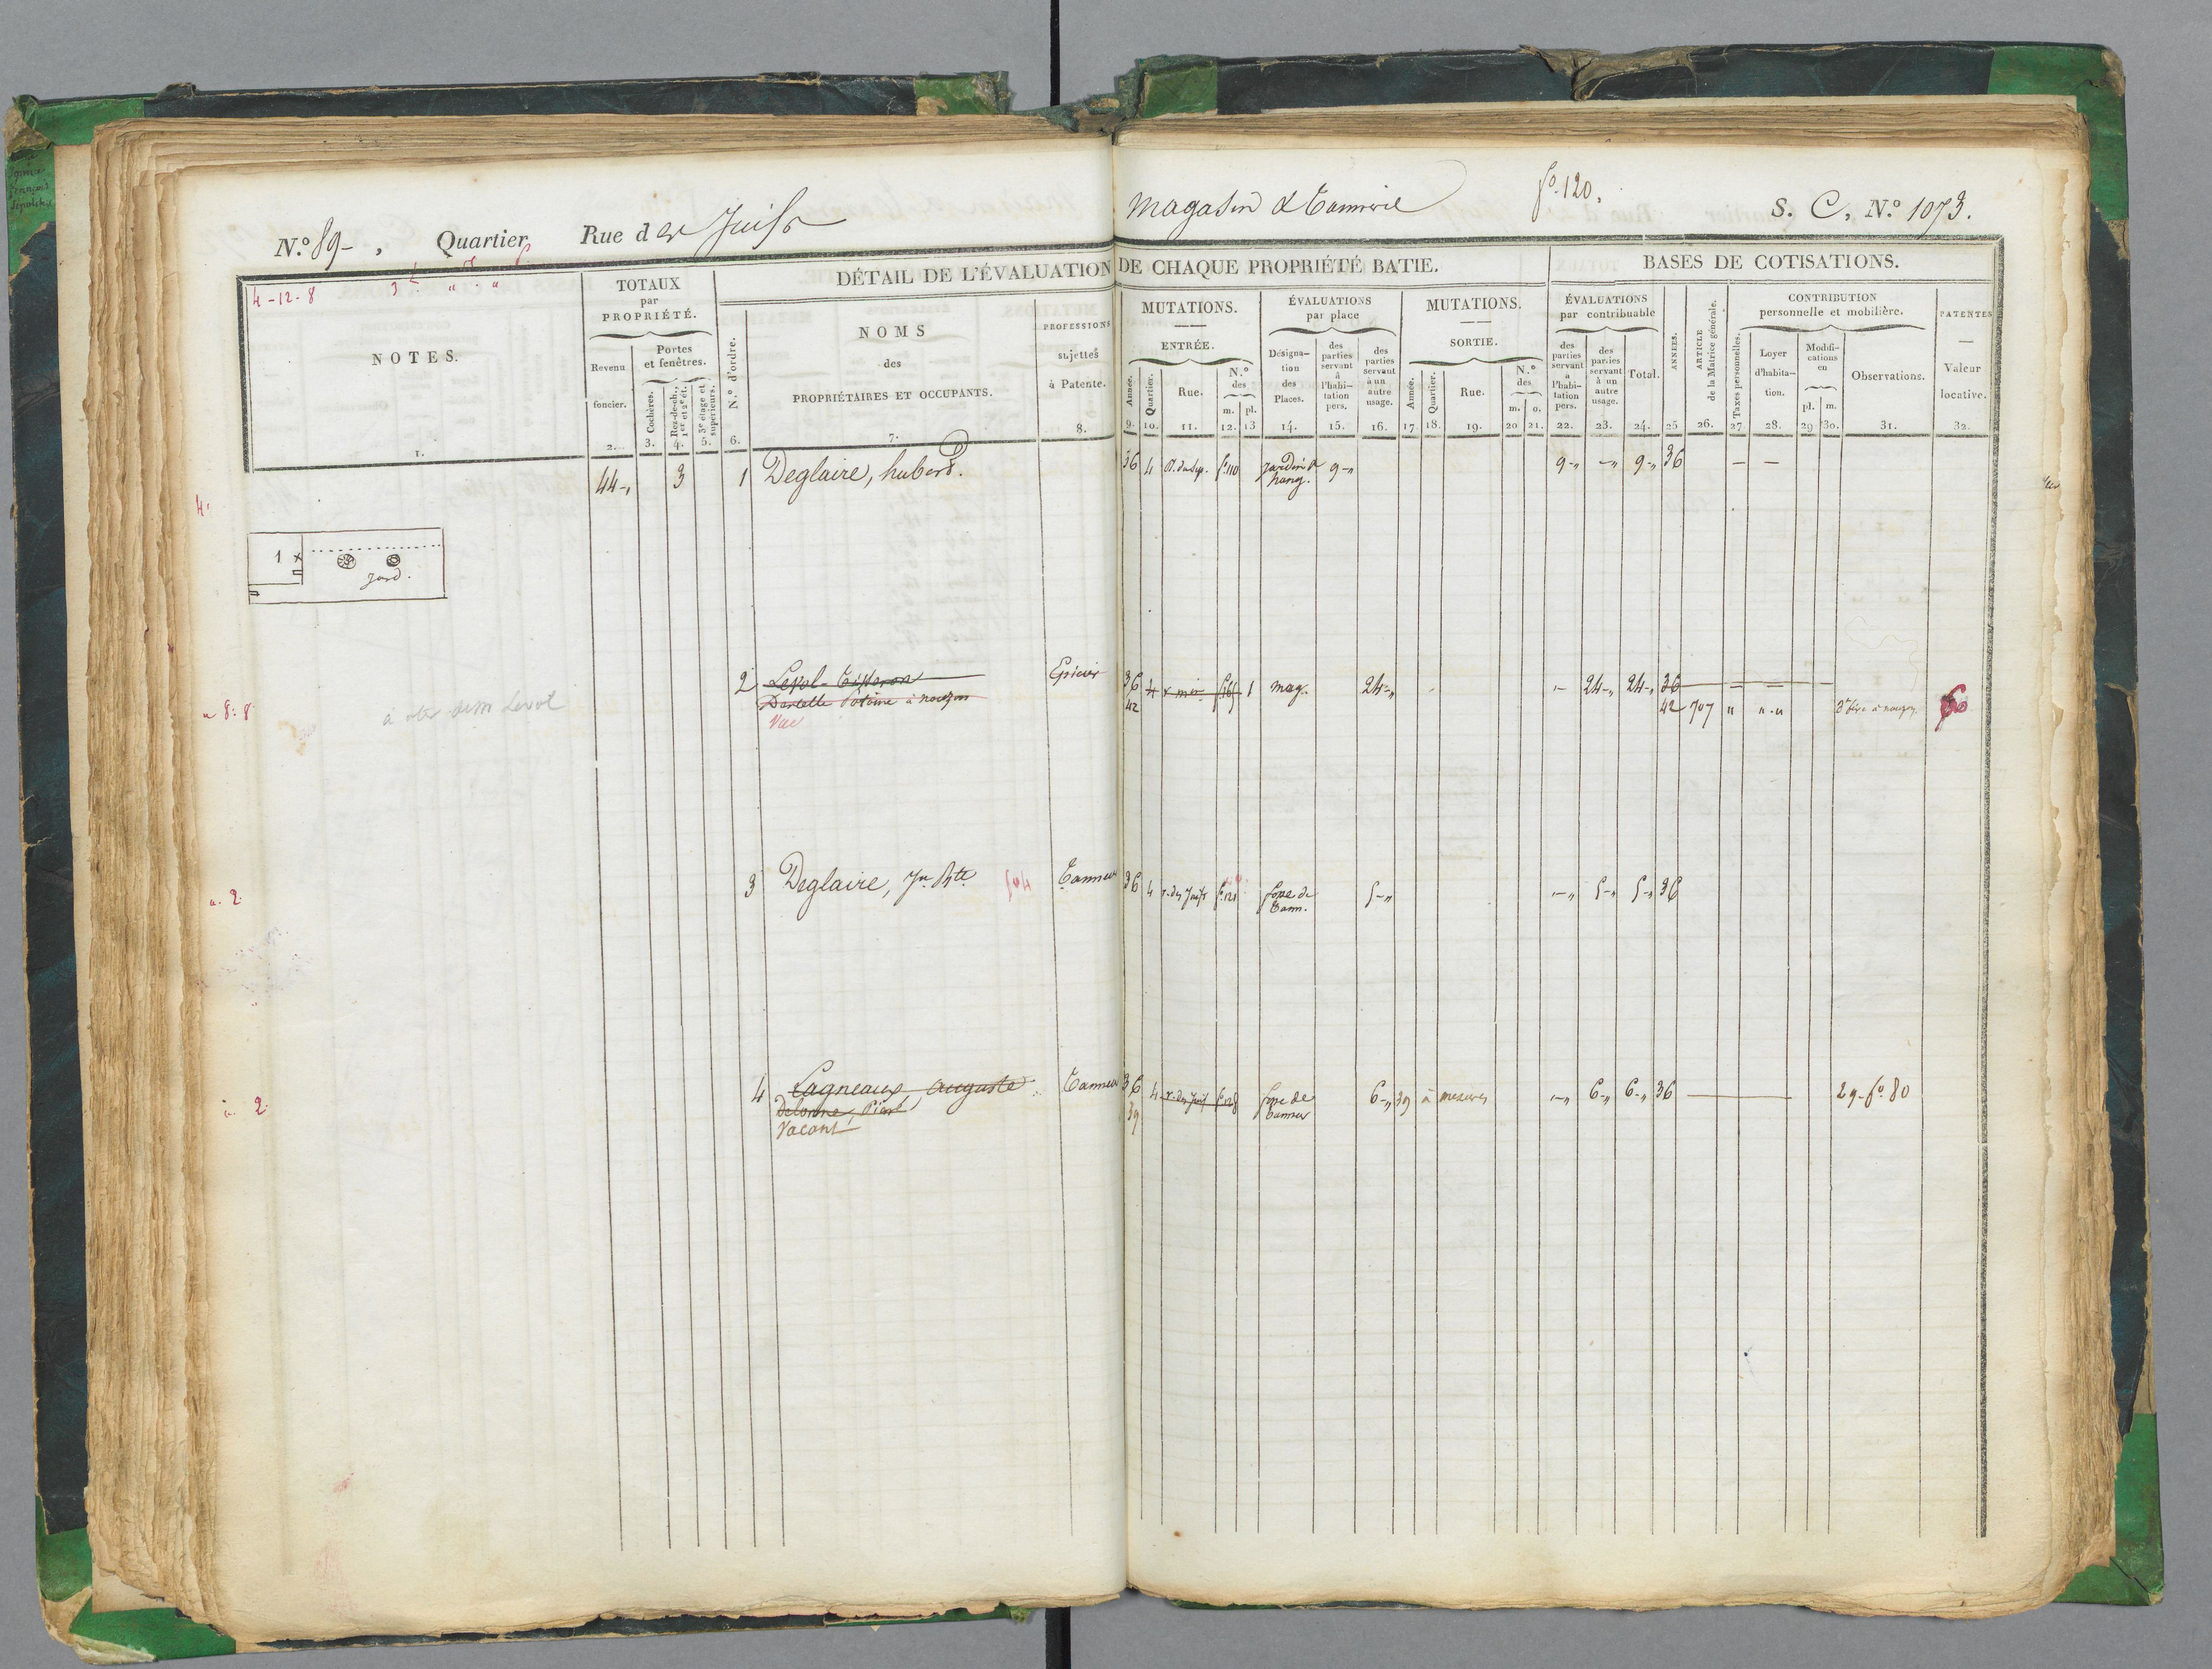 N.º 89-, Quartier Rue des Juifs
Magasin & Tannerie
fº 120.
S. C. N.º 1073.
4-12-8
NOTES.
1.
TOTAUX
par
PROPRIÉTÉ.
Revenu
foncier.
2.
Portes
et fenêtres.
Cochères.
3.
Rez-de-ch.,
1er et 2e ét.
4.
3e étage et
supérieurs.
5.
DÉTAIL DE L'ÉVALUATION DE CHAQUE PROPRIÉTÉ BATIE.
N.º d'ordre.
6.
NOMS
des
PROPRIÉTAIRES ET OCCUPANTS.
7.
PROFESSIONS
sujettes
à Patente.
8.
MUTATIONS.
ENTRÉE.
Année.
9.
Quartier.
10.
Rue.
11.
N.º
des
m. pl.
12. 13
ÉVALUATIONS
par place
Désigna-
tion
des
Places.
14.
des
parties
servant
à
l'habi-
tation
pers.
15.
des
parties
servant
à un
autre
usage.
16.
MUTATIONS.
SORTIE.
Année.
17.
Quartier.
18.
Rue.
19.
N.º
des
m. o.
20 21.
BASES DE COTISATIONS.
ÉVALUATIONS
par contribuable
des
parties
servant
à
l'habi-
tation
pers.
22.
des
parties
servant
à un
autre
usage.
23.
Total.
24.
ANNÉES.
25
ARTICLE
de la Matrice générale.
26.
CONTRIBUTION
personnelle et mobilière.
Taxes personnelles.
27
Loyer
d'habita-
tion.
28.
Modifi-
cations
en
pl. m.
29 30.
Observations.
31.
PATENTES
Valeur
locative.
32.
44-" 3 1 Deglaire, hubert. 36 4 fº110 jardin &
hang. 9-" 9-" -" 9-" 36 - -
1
jard.
2 Lepol- Epicier 36 4 1 mag. 24-" - 24-" 24-" 36
à nouzon 42 42 707 " "-"
3 Deglaire, Jn Bte Tanneur 36 4 r. des Juifs fº121 fosse de
Tann. 5-" -" 5-" 5-" 36
4 Lagneaux, auguste Tanneur 36 4 r. des Juifs fº128 fosse de
tanneur 6-" 39 à mezieres -" 6-" 6-" 36 29-fº 80
Delonne, Pierre 39
Vacant